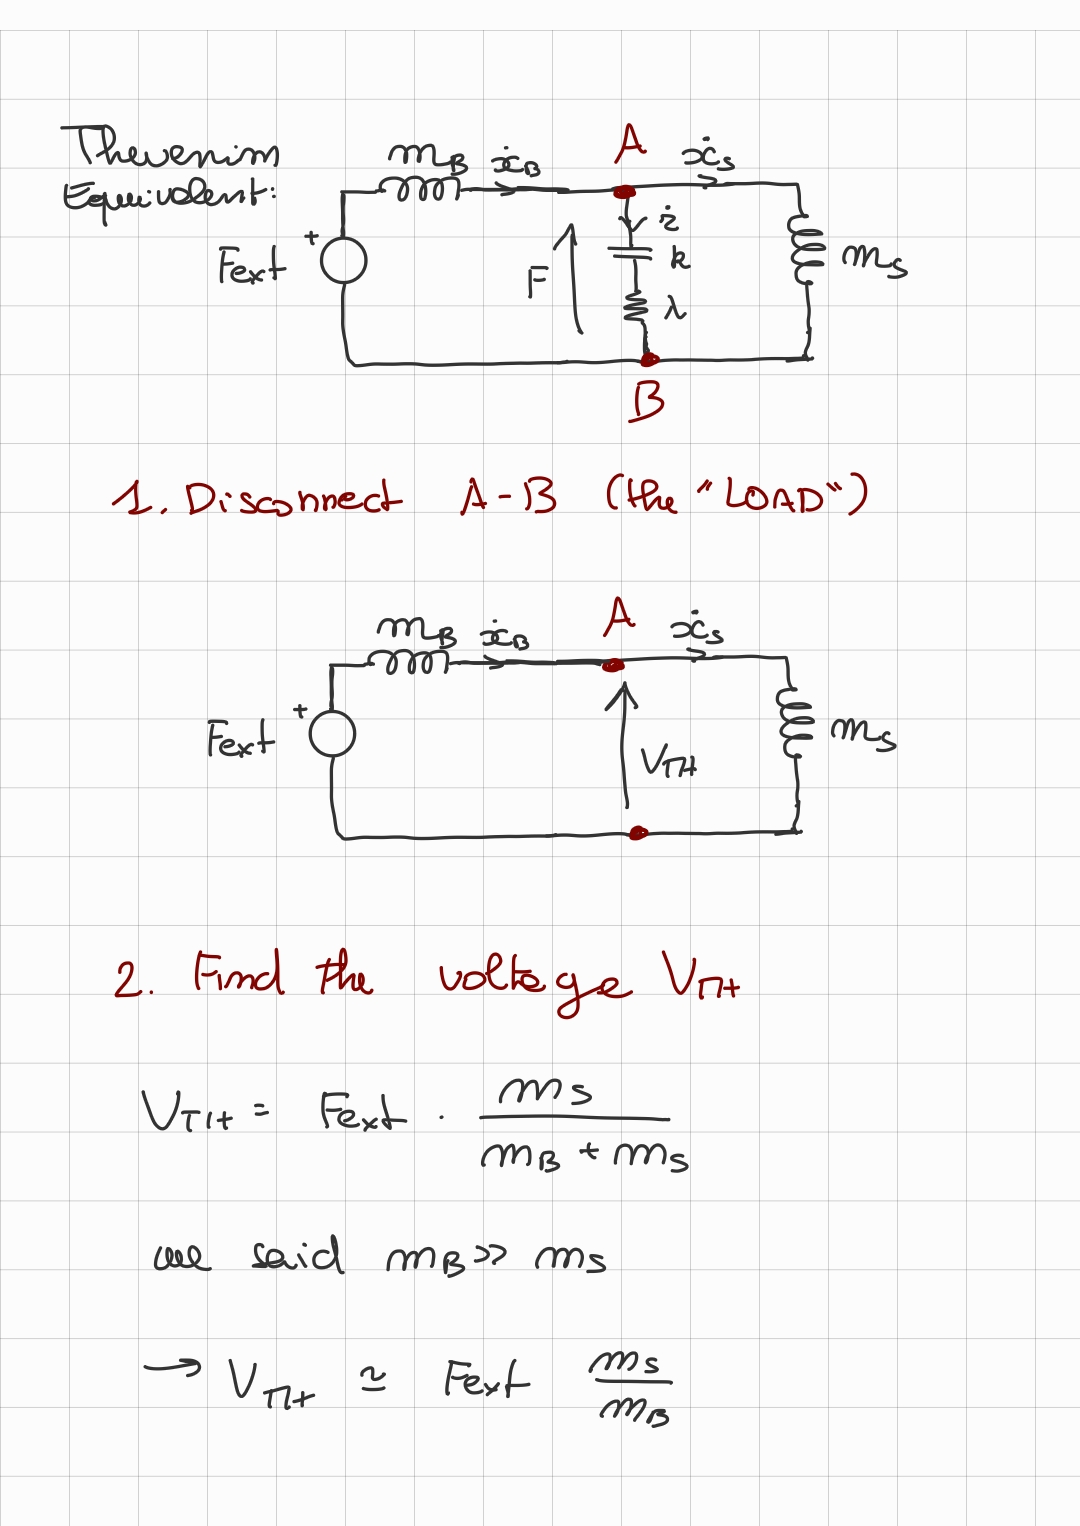 Thevenim
Equivalent:
m_B ẋ_B A ẋ_s
+ Fext F ż k λ m_s
B
1. Disconnect A-B (the "LOAD")
m_B ẋ_B A ẋ_s
+ Fext V_TH m_s
2. Find the voltage V_TH
V_TH = Fext · m_s / (m_B + m_s)
we said m_B >> m_s
→ V_TH ≃ Fext m_s / m_B